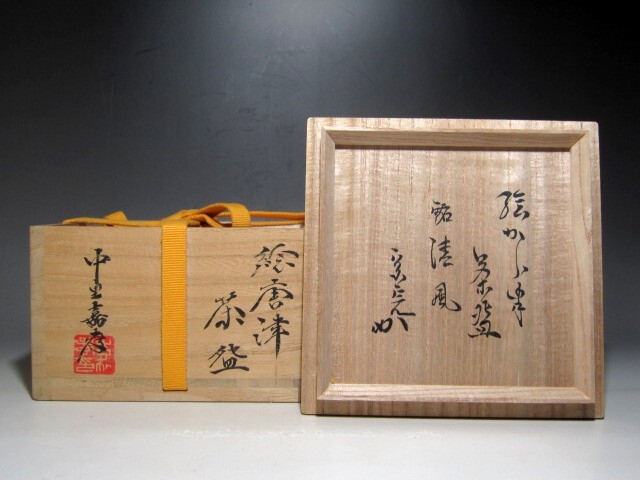 繪唐津
茶盌
中里嘉孝
絵から津
茶盌
銘 清風